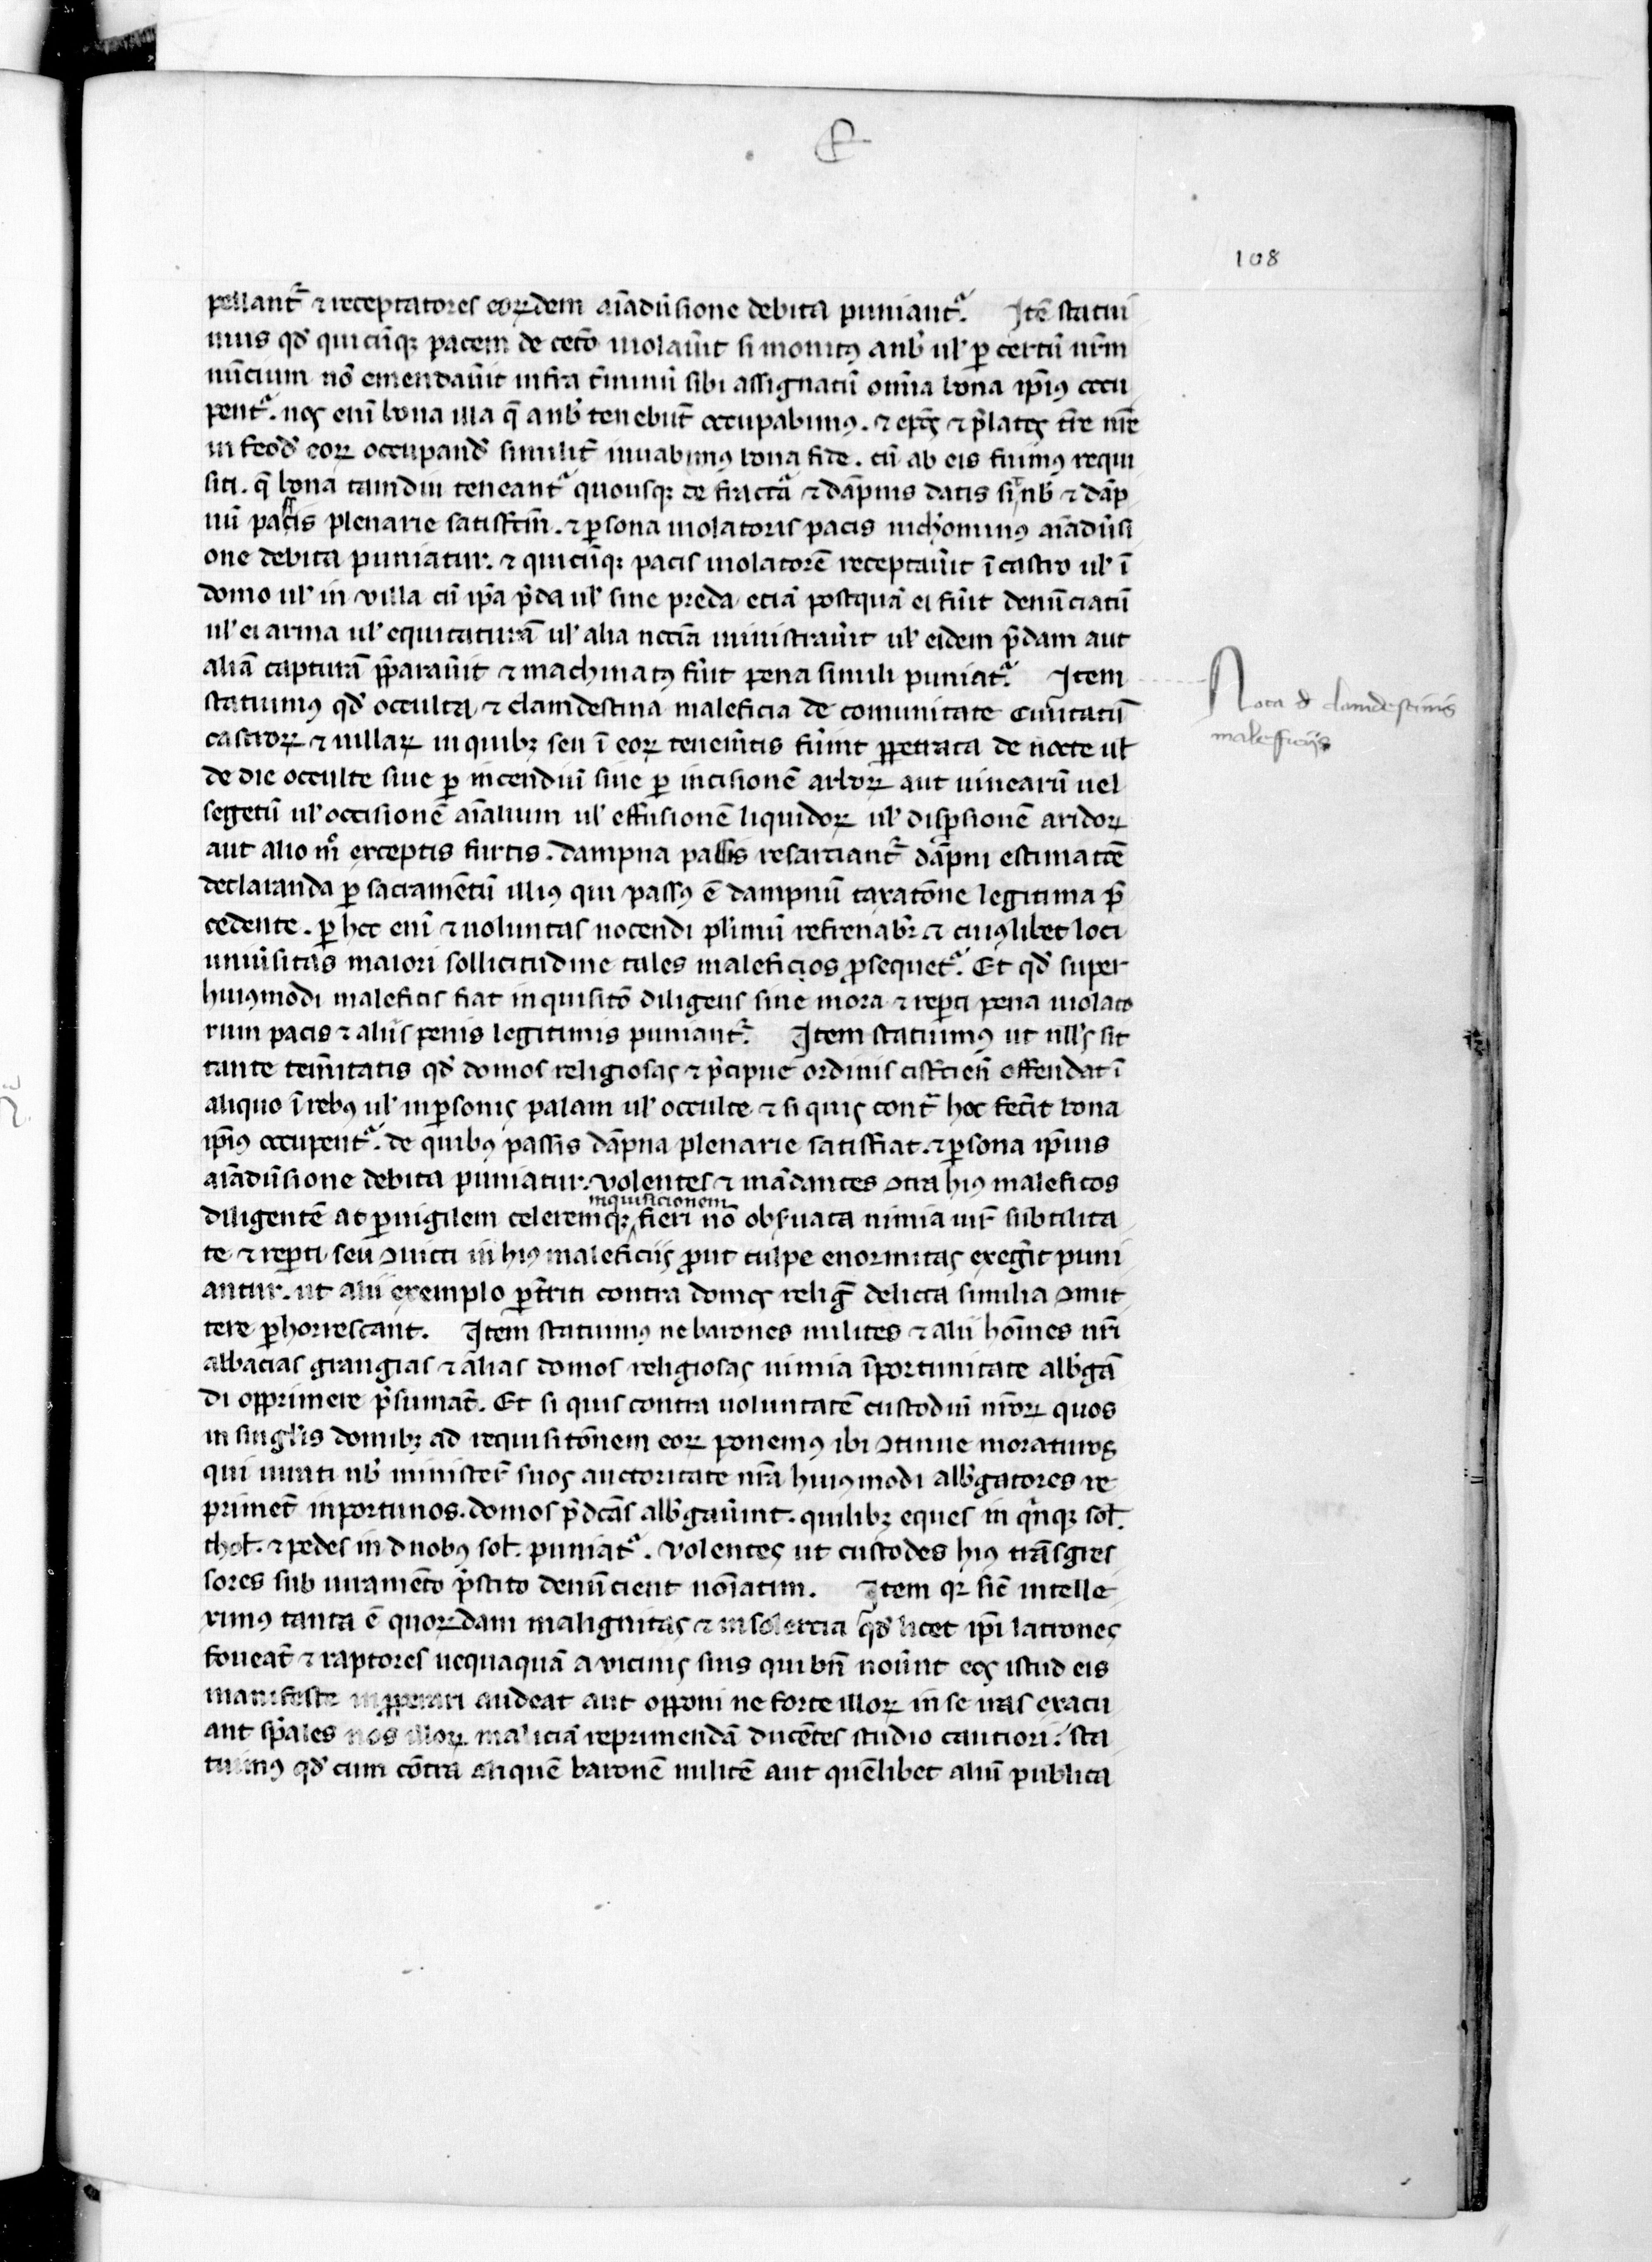 108
pellantᷣ ⁊ receptatores eoꝝdem aīaduˀsione debita puniantᷣ. Itē statui
mus qđ quicūqꝫ pacem de cetˀo uiolauˀit si monitꝰ a nobˀ ulˀ ꝑ certū nr̄m
nūcium nō emendauˀit infra tˀminū sibi assignatū om̄ia bona ip̄iꝰ occu
pentᷣ. nos enī bona illa q̄ a nobˀ tenebūt occupabimꝰ. ⁊ ep̄os ⁊ p̄latos tr̄e nr̄e
in feođ eoꝝ occupanđ similitˀ iuuabimꝰ bona fide. cū ab eis fuimꝰ requi
siti. q̄ bona tamdiu teneantᷣ quousqꝫ de fracta ⁊ dāpnis datis si nobˀ ⁊ dāp
nū passis plenarie satisfc̄m. ⁊ ꝑsona uiolatoris pacis nichˀominꝰ aīaduˀsi
one debita puniatur. ⁊ quicūqꝫ pacis uiolatorē receptauˀit ī castro ulˀ ī
domo ulˀ in villa cū ip̄a p̄da ulˀ sine preda eciā postquā ei fuˀit denūciatū
ulˀ ei arma ulˀ equitaturā ulˀ alia nec̄cia ministrauˀit ulˀ eidem p̄dam aut
aliā capturā p̄parauˀit ⁊ machinatꝰ fuˀit pena simili puniatᷣ. Item
statuimꝰ qđ occulta ⁊ clamdestina maleficia de comunitate Ciuitatū
castroꝝ ⁊ uillaꝝ in quibꝫ seu ī eoꝝ tenemˀtis fuˀint ꝑpetrata de nocte ulˀ
de die occulte siue ꝑ incendiū siue ꝑ incisionē arboꝝ aut uinearū uel
segetū ulˀ occisionē aīalium ulˀ effusionē liquidoꝝ ulˀ disꝑsionē aridoꝝ
aut alio mͦ exceptis furtis. dampna passis resarciantᷣ dāpni estimatōe
declaranda ꝑ sacramētū illiꝰ qui passꝰ ē dampnū taxatōne legitima p̄
cedente. ꝑ hoc enī ⁊ uoluntas nocendi plˀimū refrenabr̄ ⁊ cuiꝰlibet loci
uniuˀsitas maiori sollicitudine tales maleficos ꝓsequetᷣ. Et qđ super
huiꝰmodi maleficis fiat inquisitō diligens sine mora ⁊ reꝑti pena uiolato
rum pacis ⁊ aliis penis legitimis puniantᷣ. Item statuimꝰ ut nllˀs sit
tante temˀitatis qđ domos religiosas ⁊ p̄cipue ordinis cistˀcien̄ offendat ī
aliquo ī rebꝰ ulˀ in ꝑsonis palam ulˀ occulte ⁊ si quis contˀ hoc fecˀit bona
ip̄iꝰ occupentᷣ. de quibꝰ passis dāpna plenarie satisfiat. ⁊ ꝑsona ip̄ius
aīaduˀsione debita puniatur. volentes ⁊ mādantes ꝯtra hiꝰ maleficos
inquisicionem
diligentē at ꝑuigilem celeremqꝫ fieri nō obsˀuata nimia iur̄ subtilita
te ⁊ reꝑti seu ꝯuicti in hiꝰ maleficiis ꝓut culpe enormitas exegˀit puni
antur. ut alii exemplo ꝑtˀriti contra domos reliḡ delicta similia ꝯmit
tere ꝑhorrescant. Item statuimꝰ ne barones milites ⁊ alii hoīes nr̄i
abbacias grangias ⁊ alias domos religiosas nimia īportunitate albˀgā
di opprimere p̄sumāt. Et si quis contra uoluntatē custodiū nr̄oꝝ quos
in singlˀis domibꝫ ad requisitōnem eoꝝ ponemꝰ ibi ꝯtinue moraturos
qui iurati nobˀ ministerˀ suos auctoritate nr̄a huiꝰmodi albˀgatores re
primēt inportunos. domos p̄dc̄as albˀgauˀint. quilibꝫ eques in qˀnqꝫ sol̄.
thol̄. ⁊ pedes in duobꝰ sol̄. puniatᷣ. volentes ut custodes hiꝰ trāsgres
sores sub iuramēto p̄stito denūcient noīatim. Item qꝛ sic̄ intelle
ximꝰ tanta ē quoꝝdam malignitas ⁊ insolencia qđ licet ip̄i latrones
foueāt ⁊ raptores nequaquā a vicinis suis qui bn̄ nouˀint eos istud eis
manifeste inꝓꝑari audeat aut opponi ne forte illoꝝ in se iras exacu
ant sp̄ales nos illoꝝ maliciā reprimendā ducētes studio cautiori. sta
tuimꝰ qđ cum cōtra aliquē baronē militē aut quēlibet aliū publica
Nota đ clamdestinis
maleficiis